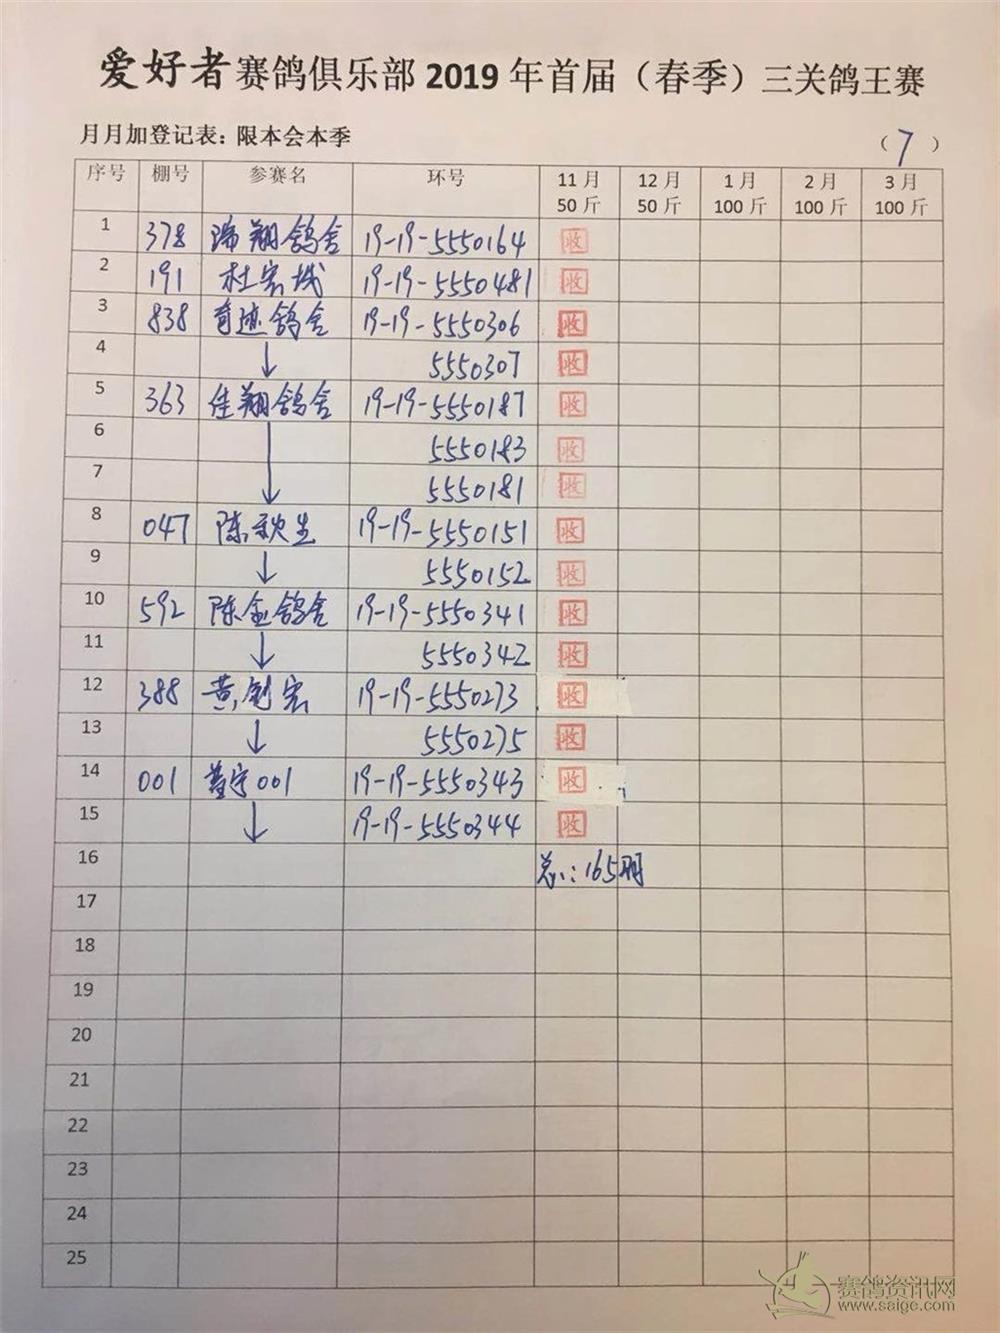 爱好者赛鸽俱乐部2019年首届（春季）三关鸽王赛
月月加登记表：限本会本季 （7）
序号 棚号 参赛名 环号 11月 50斤 12月 50斤 1月 100斤 2月 100斤 3月 100斤
1 378 瑞翔鸽舍 19-19-5550164 收
2 191 杜宏城 19-19-5550481 收
3 838 奇迹鸽舍 19-19-5550306 收
4 ↓ 5550307 收
5 363 佳翔鸽舍 19-19-5550187 收
6 5550183 收
7 ↓ 5550181 收
8 047 陈秋生 19-19-5550151 收
9 ↓ 5550152 收
10 592 陈金鸽舍 19-19-5550341 收
11 ↓ 5550342 收
12 388 黄剑宏 19-19-5550273 收
13 ↓ 5550275 收
14 001 001 19-19-5550343 收
15 ↓ 19-19-5550344 收
16 总：165羽
17
18
19
20
21
22
23
24
25
赛鸽资讯网
www.saige.com